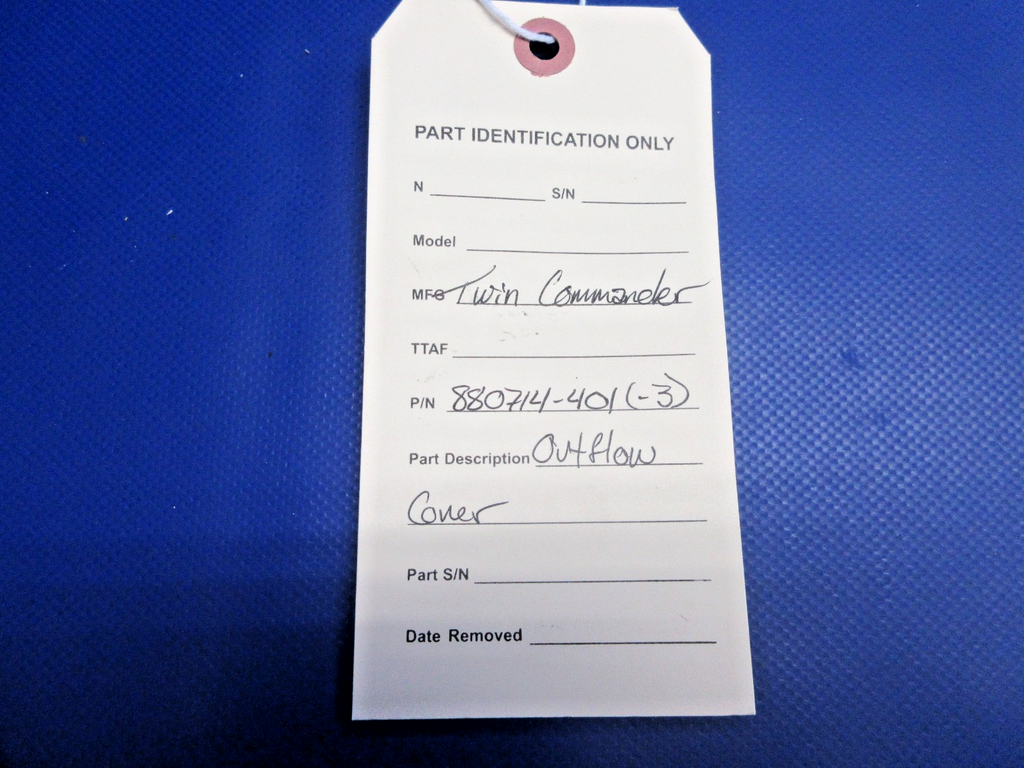 PART IDENTIFICATION ONLY
N S/N
Model
MFG Twin Commander
TTAF
P/N 880714-401 (-3)
Part Description Outflow
Cover
Part S/N
Date Removed